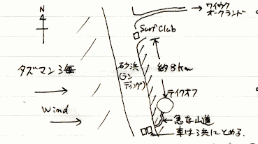 N
→ ワイウク
オークランド
Surf Club
タズマン海
砂浜
(ランディング)
約8km
テイクオフ
Wind
急な山道
車は3浜にとめる.